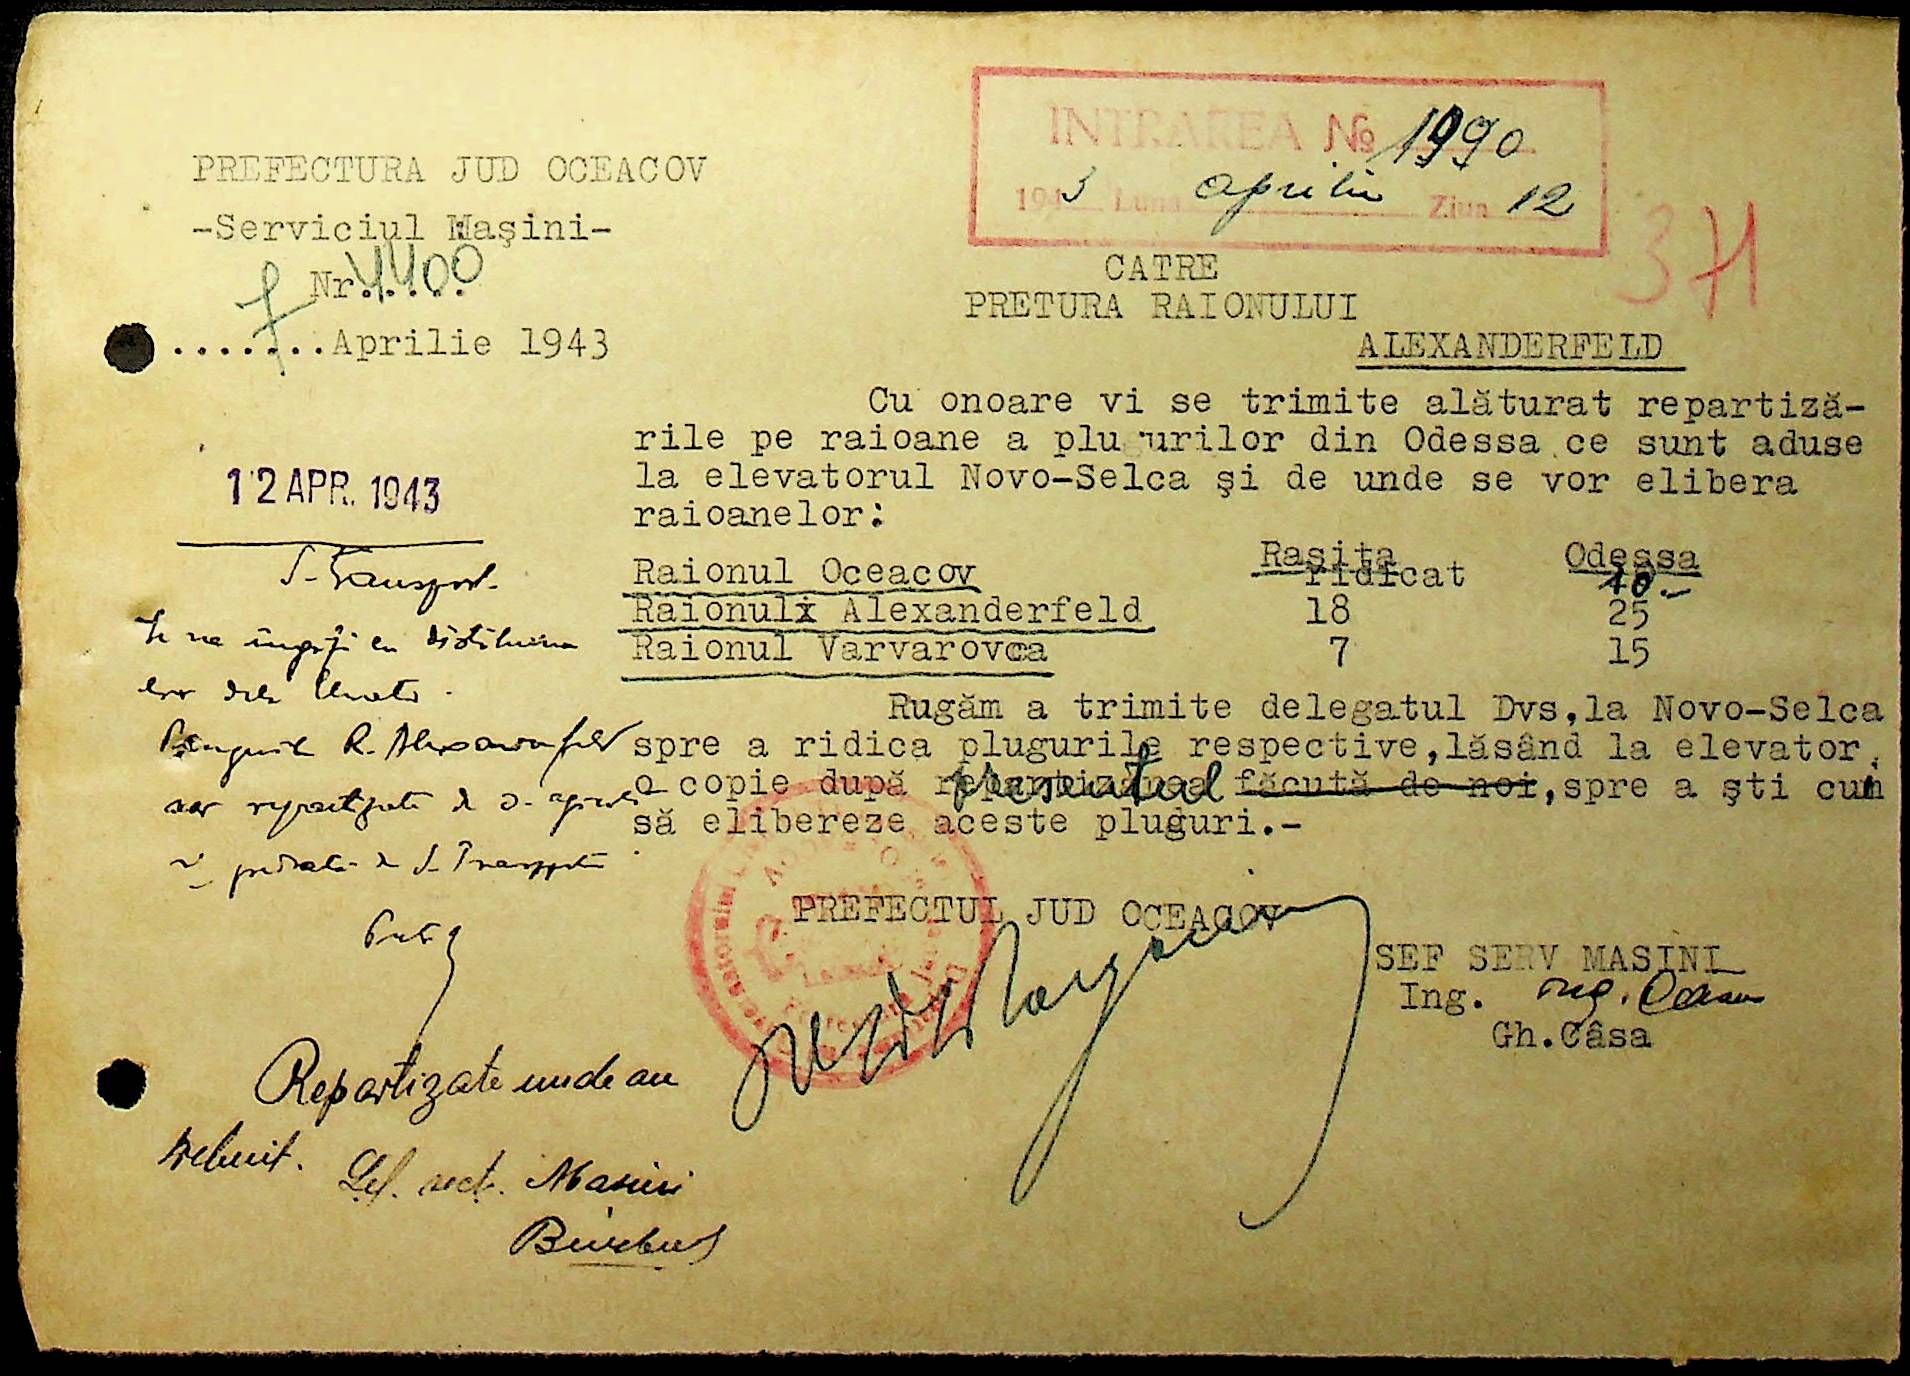 INTRAREA № 1990
1943 Luna aprilie Ziua 12
PREFECTURA JUD OCEACOV
-Serviciul Maşini-
Nr. 4400
7 Aprilie 1943
371
CATRE
PRETURA RAIONULUI
ALEXANDERFELD
Cu onoare vi se trimite alăturat repartiză-
rile pe raioane a plugurilor din Odessa ce sunt aduse
la elevatorul Novo-Selca şi de unde se vor elibera
raioanelor:
Raşiţa Odessa
Raionul Oceacov ridicat 10.-
Raionul Alexanderfeld 18 25
Raionul Varvarovca 7 15
Rugăm a trimite delegatul Dvs,la Novo-Selca
spre a ridica plugurile respective,lăsând la elevator
o copie după prezentul făcută de noi,spre a şti cum
să elibereze aceste pluguri.-
PREFECTUL JUD OCEACOV
SEF SERV MASINI
Ing. Ing.
Gh.Câsa
12 APR. 1943
S. Transport.
R. Alexanderfeld
Repartizate unde au
trebuit.
Şef. sect. Masini